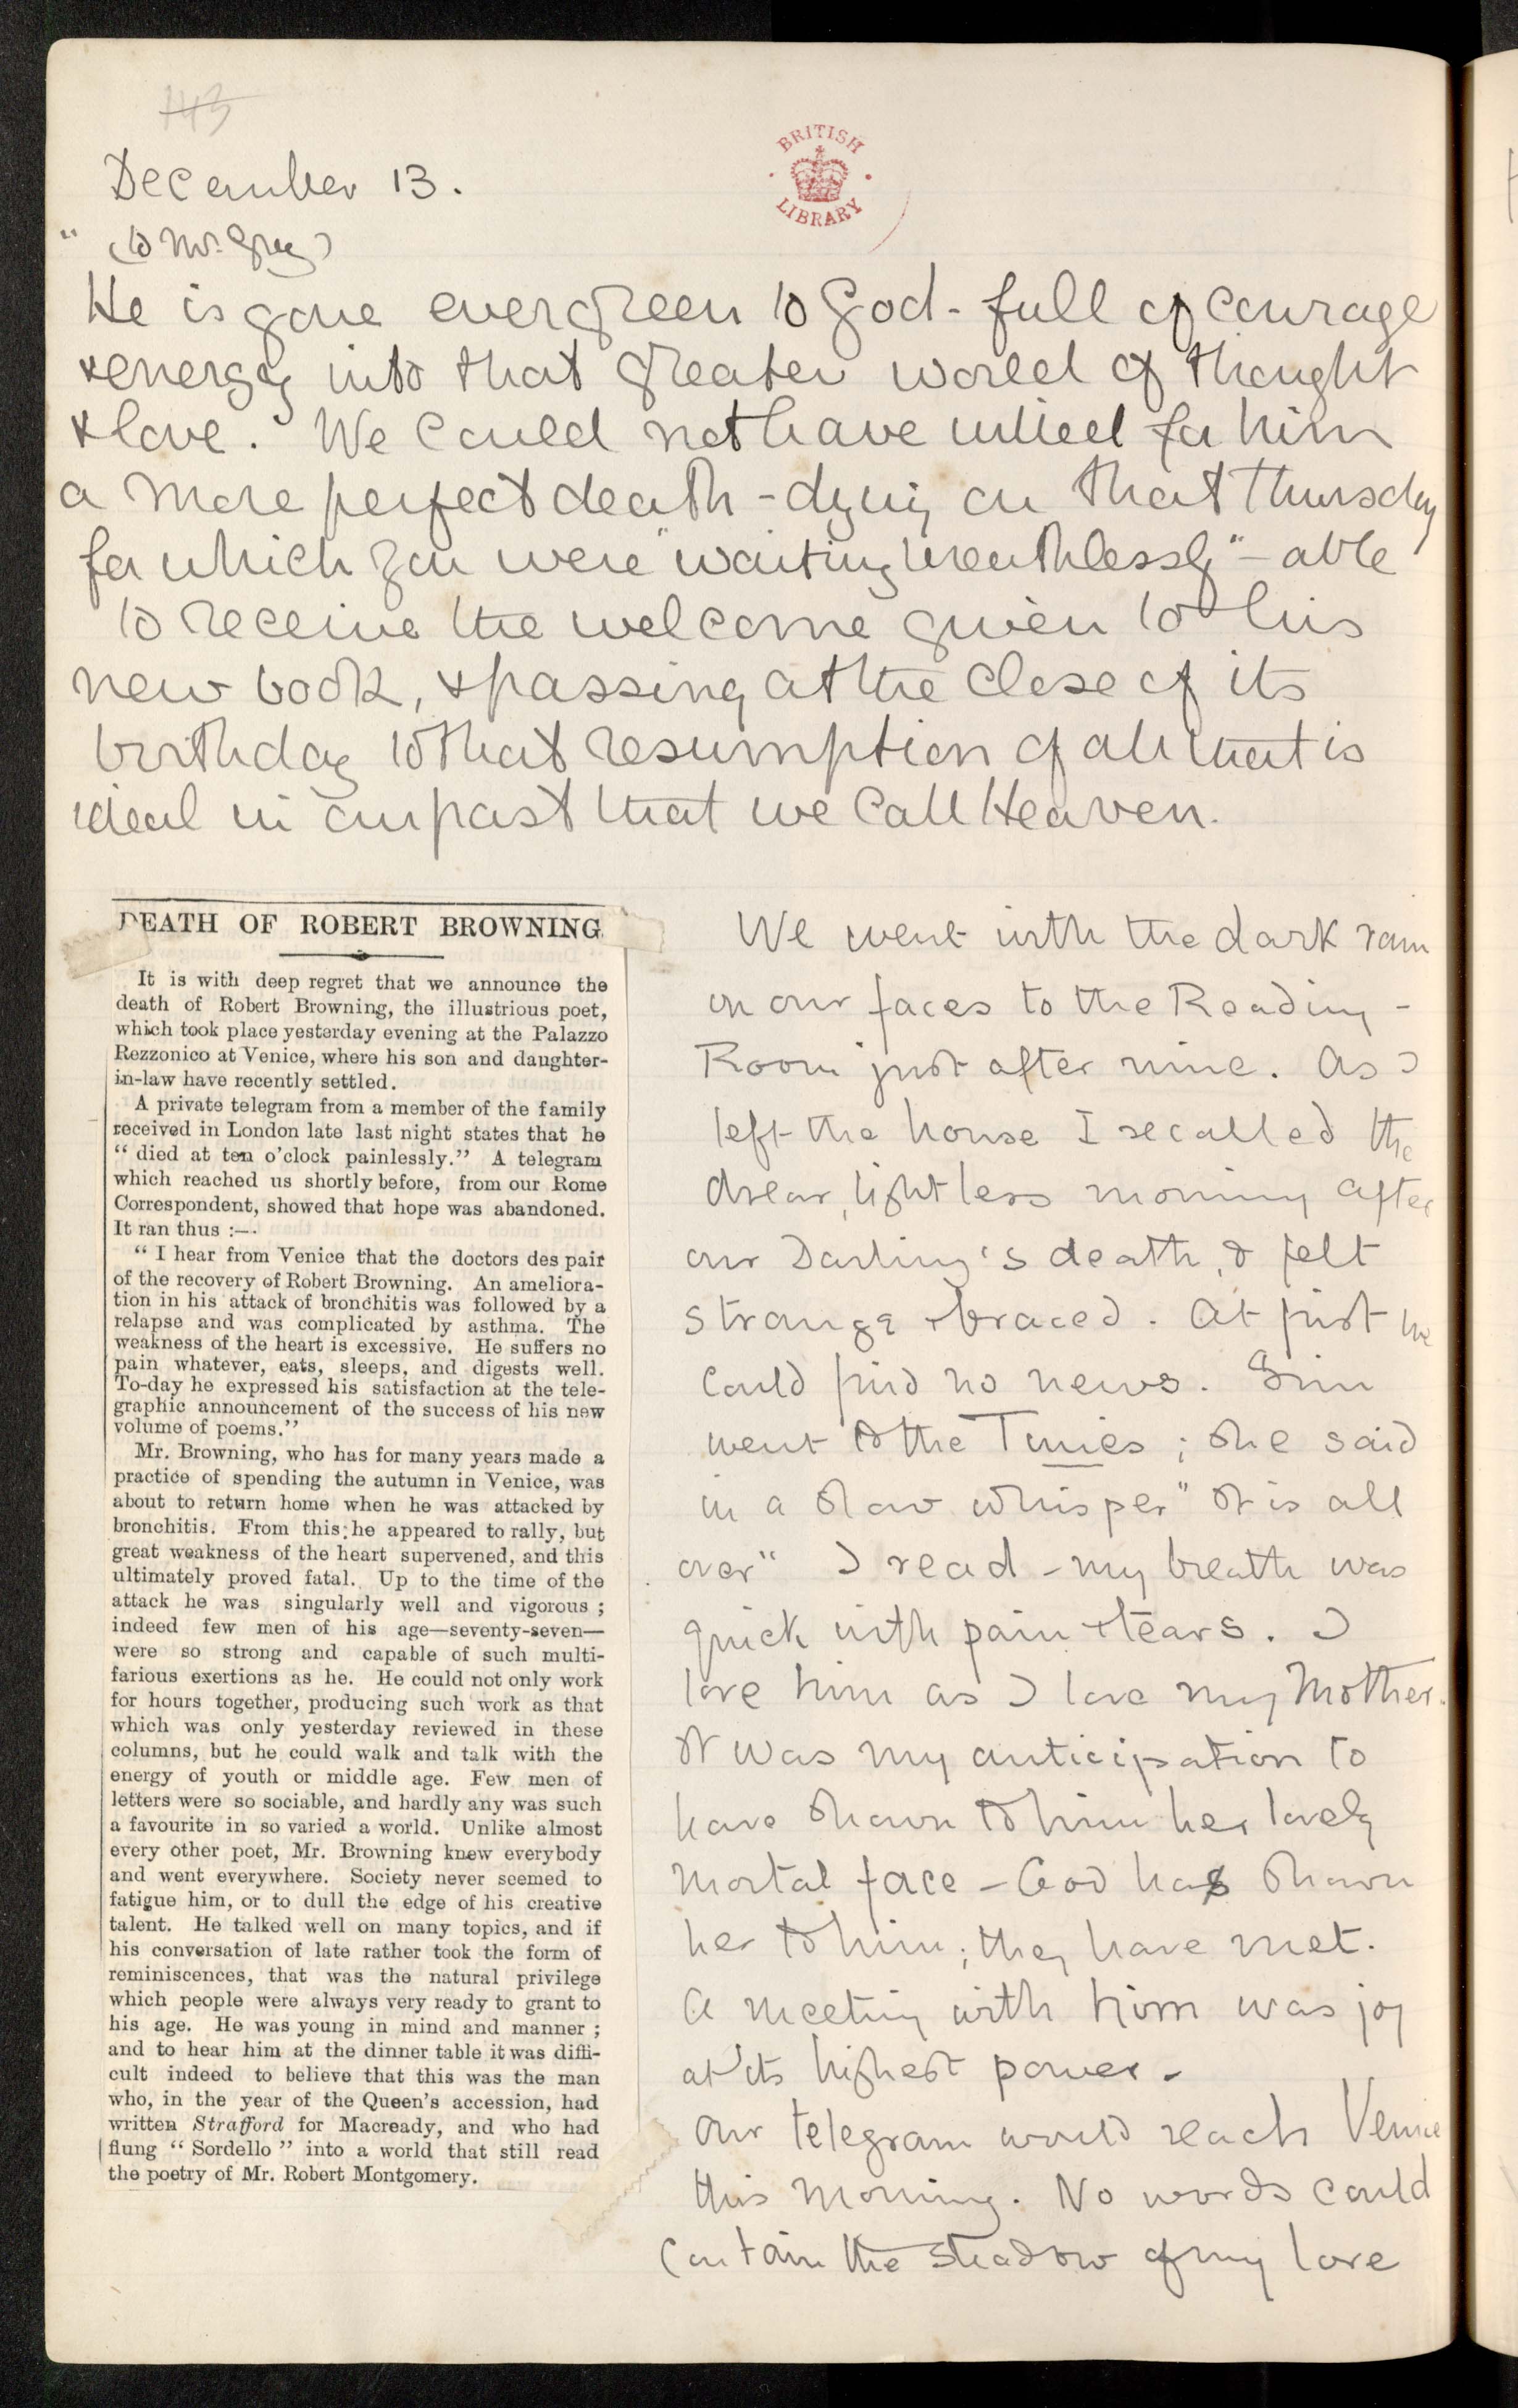 143
BRITISH
LIBRARY
December 13.
" (to Mr. Grey)
He is gone evergreen to God - full of courage
& energy into that greater world of thought
& love. We could not have willed for him
a more perfect death - dying on that Thursday
for which you were "waiting breathlessly" - able
to receive the welcome given to his
new book, & passing at the close of its
birthday to that resumption of all that is
ideal in our past that we call Heaven.
DEATH OF ROBERT BROWNING
It is with deep regret that we announce the
death of Robert Browning, the illustrious poet,
which took place yesterday evening at the Palazzo
Rezzonico at Venice, where his son and daughter-
in-law have recently settled.
A private telegram from a member of the family
received in London late last night states that he
“ died at ten o'clock painlessly.” A telegram
which reached us shortly before, from our Rome
Correspondent, showed that hope was abandoned.
It ran thus :—
“ I hear from Venice that the doctors des pair
of the recovery of Robert Browning. An ameliora-
tion in his attack of bronchitis was followed by a
relapse and was complicated by asthma. The
weakness of the heart is excessive. He suffers no
pain whatever, eats, sleeps, and digests well.
To-day he expressed his satisfaction at the tele-
graphic announcement of the success of his new
volume of poems.”
Mr. Browning, who has for many years made a
practice of spending the autumn in Venice, was
about to return home when he was attacked by
bronchitis. From this he appeared to rally, but
great weakness of the heart supervened, and this
ultimately proved fatal. Up to the time of the
attack he was singularly well and vigorous ;
indeed few men of his age—seventy-seven—
were so strong and capable of such multi-
farious exertions as he. He could not only work
for hours together, producing such work as that
which was only yesterday reviewed in these
columns, but he could walk and talk with the
energy of youth or middle age. Few men of
letters were so sociable, and hardly any was such
a favourite in so varied a world. Unlike almost
every other poet, Mr. Browning knew everybody
and went everywhere. Society never seemed to
fatigue him, or to dull the edge of his creative
talent. He talked well on many topics, and if
his conversation of late rather took the form of
reminiscences, that was the natural privilege
which people were always very ready to grant to
his age. He was young in mind and manner ;
and to hear him at the dinner table it was diffi-
cult indeed to believe that this was the man
who, in the year of the Queen's accession, had
written Strafford for Macready, and who had
flung “ Sordello ” into a world that still read
the poetry of Mr. Robert Montgomery.
We went with the dark rain
on our faces to the Reading -
Room just after nine. As I
left the house I recalled the
drear, lightless morning after
our Darling's death, & felt
strange & braced. At first we
could find no news. Sim
went to the Times ; she said
in a slow whisper "It is all
over" I read - my breath was
quick with pain & tears. I
love him as I love my Mother.
It was my anticipation to
have shown to him her lovely
mortal face - God has shown
her to him ; they have met.
A meeting with him was joy
at its highest power.
Our telegram would reach Venice
this morning. No words could
contain the shadow of my love